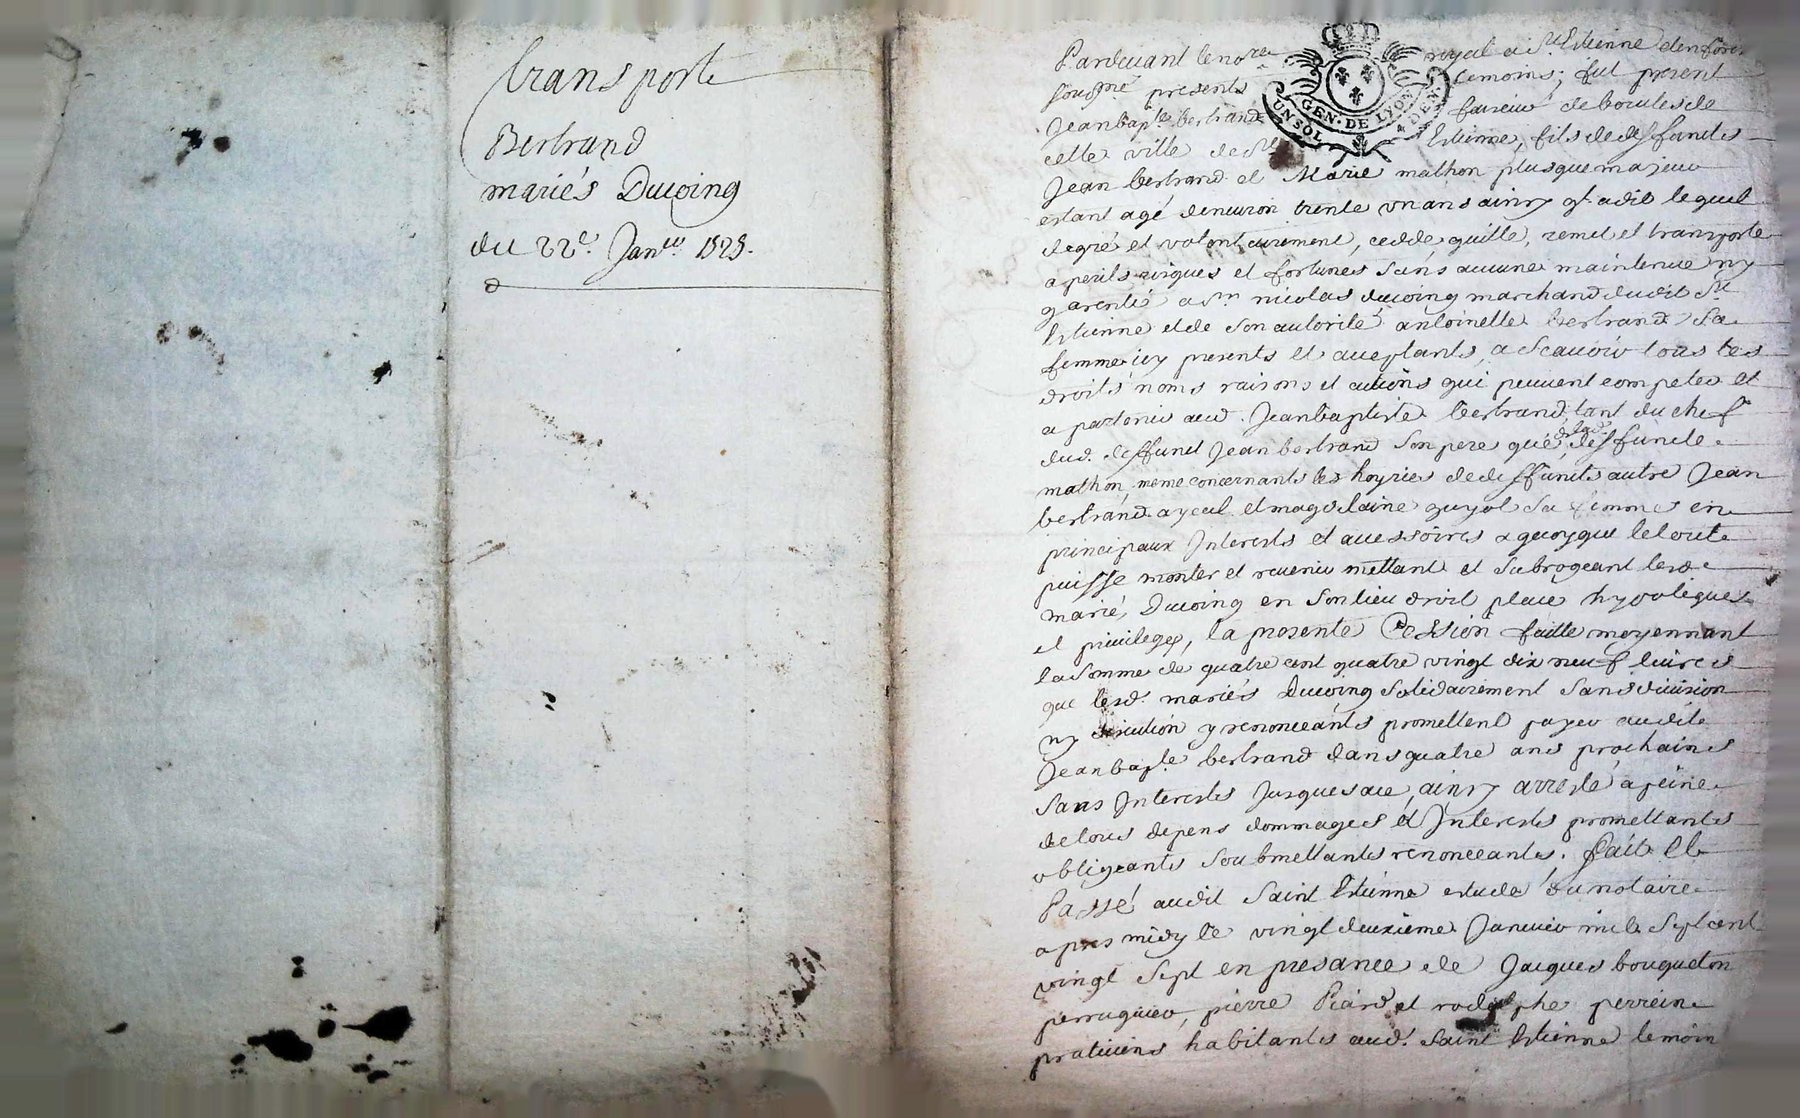 transporte
Bertrand
mariés Ducoing
du 22e. Janer 1525.
Pardevant le nore royal a St Estienne de
sousné presents temoins; fut present
Jean bapte bertrand faiseur de boucles de
cette ville de St Estienne, fils de deffuncts
Jean bertrand et Marie mathon plusque majeur
estant agé denviron trente un ans ainsy qt a dit lequel
de gré et volontairement, cedde, quitte, remet et transporte
a perils risques et fortunes sans aucune maintenue ny
garentie a sr nicolas ducoing marchand dudit St
Estienne et de son autorité antoinette bertrand sa
femme icy presents et acceptants, a scavoir tous les
droits noms raisons et actions qui peuvent competer et
apartenir aud. Jean baptiste bertrand tant du chef
dud. deffunct Jean bertrand son pere que de lad. deffuncte
mathon, meme concernants les hoyries de deffuncts autre Jean
bertrand ayeul et magdelaine guyot sa femme en
principaux Interests et accessoires a quoy que le tout
puisse monter et revenir mettant et subrogeant lesd.
mariés Ducoing en son lieu droit place hypoteques
et privileges, la presente Cession faitte moyennant
la somme de quatre cent quatre vingt dix neuf livres
que lesd. mariés Ducoing solidairement sans division
ny discution y renonceants promettent payer audit
Jean bapte bertrand dans quatre ans prochains
sans Interests jusques a ce, ainsy arresté a peine
de tous depens dommages et Interests promettants
obligeants soubmettants renonceants. fait et
Passé audit Saint Estienne estude du notaire
apres midy le vingt deuxieme Janvier mil sept cent
vingt sept en presance de Jacques bouqueton
perruquier, pierre Picard et rodolphe perrein
praticiens habitants aud. Saint Estienne temoin
GEN. DE LYON
UN SOL 4 DEN.